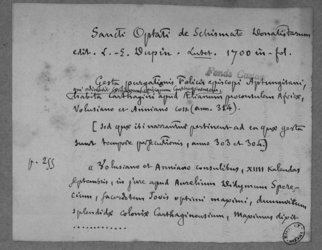 Sancti Optati de Schismate Donatistarum
edit. L.-E. Dupin. Lutet. 1700 in-fol.
Gesta purgationis Felicis episcopi Aptungitani,
habita Carthagini apud Ælianum proconsulem Africæ,
Volusiano et Anniano coss (ann. 314).
[sed quæ iti narrantur pertinent ad ea quæ gesta
sunt tempore persecutionis, anno 303 et 304.]
p. 255
« Volusiano et Anniano consulibus, XIIII kalendas
septembris, in jure apud Aurelium Didymum Spere-
tium, sacerdotem Jovis optimi maximi, duumvirum
splendidæ coloniæ Carthaginensium, Maximus dixit
..............